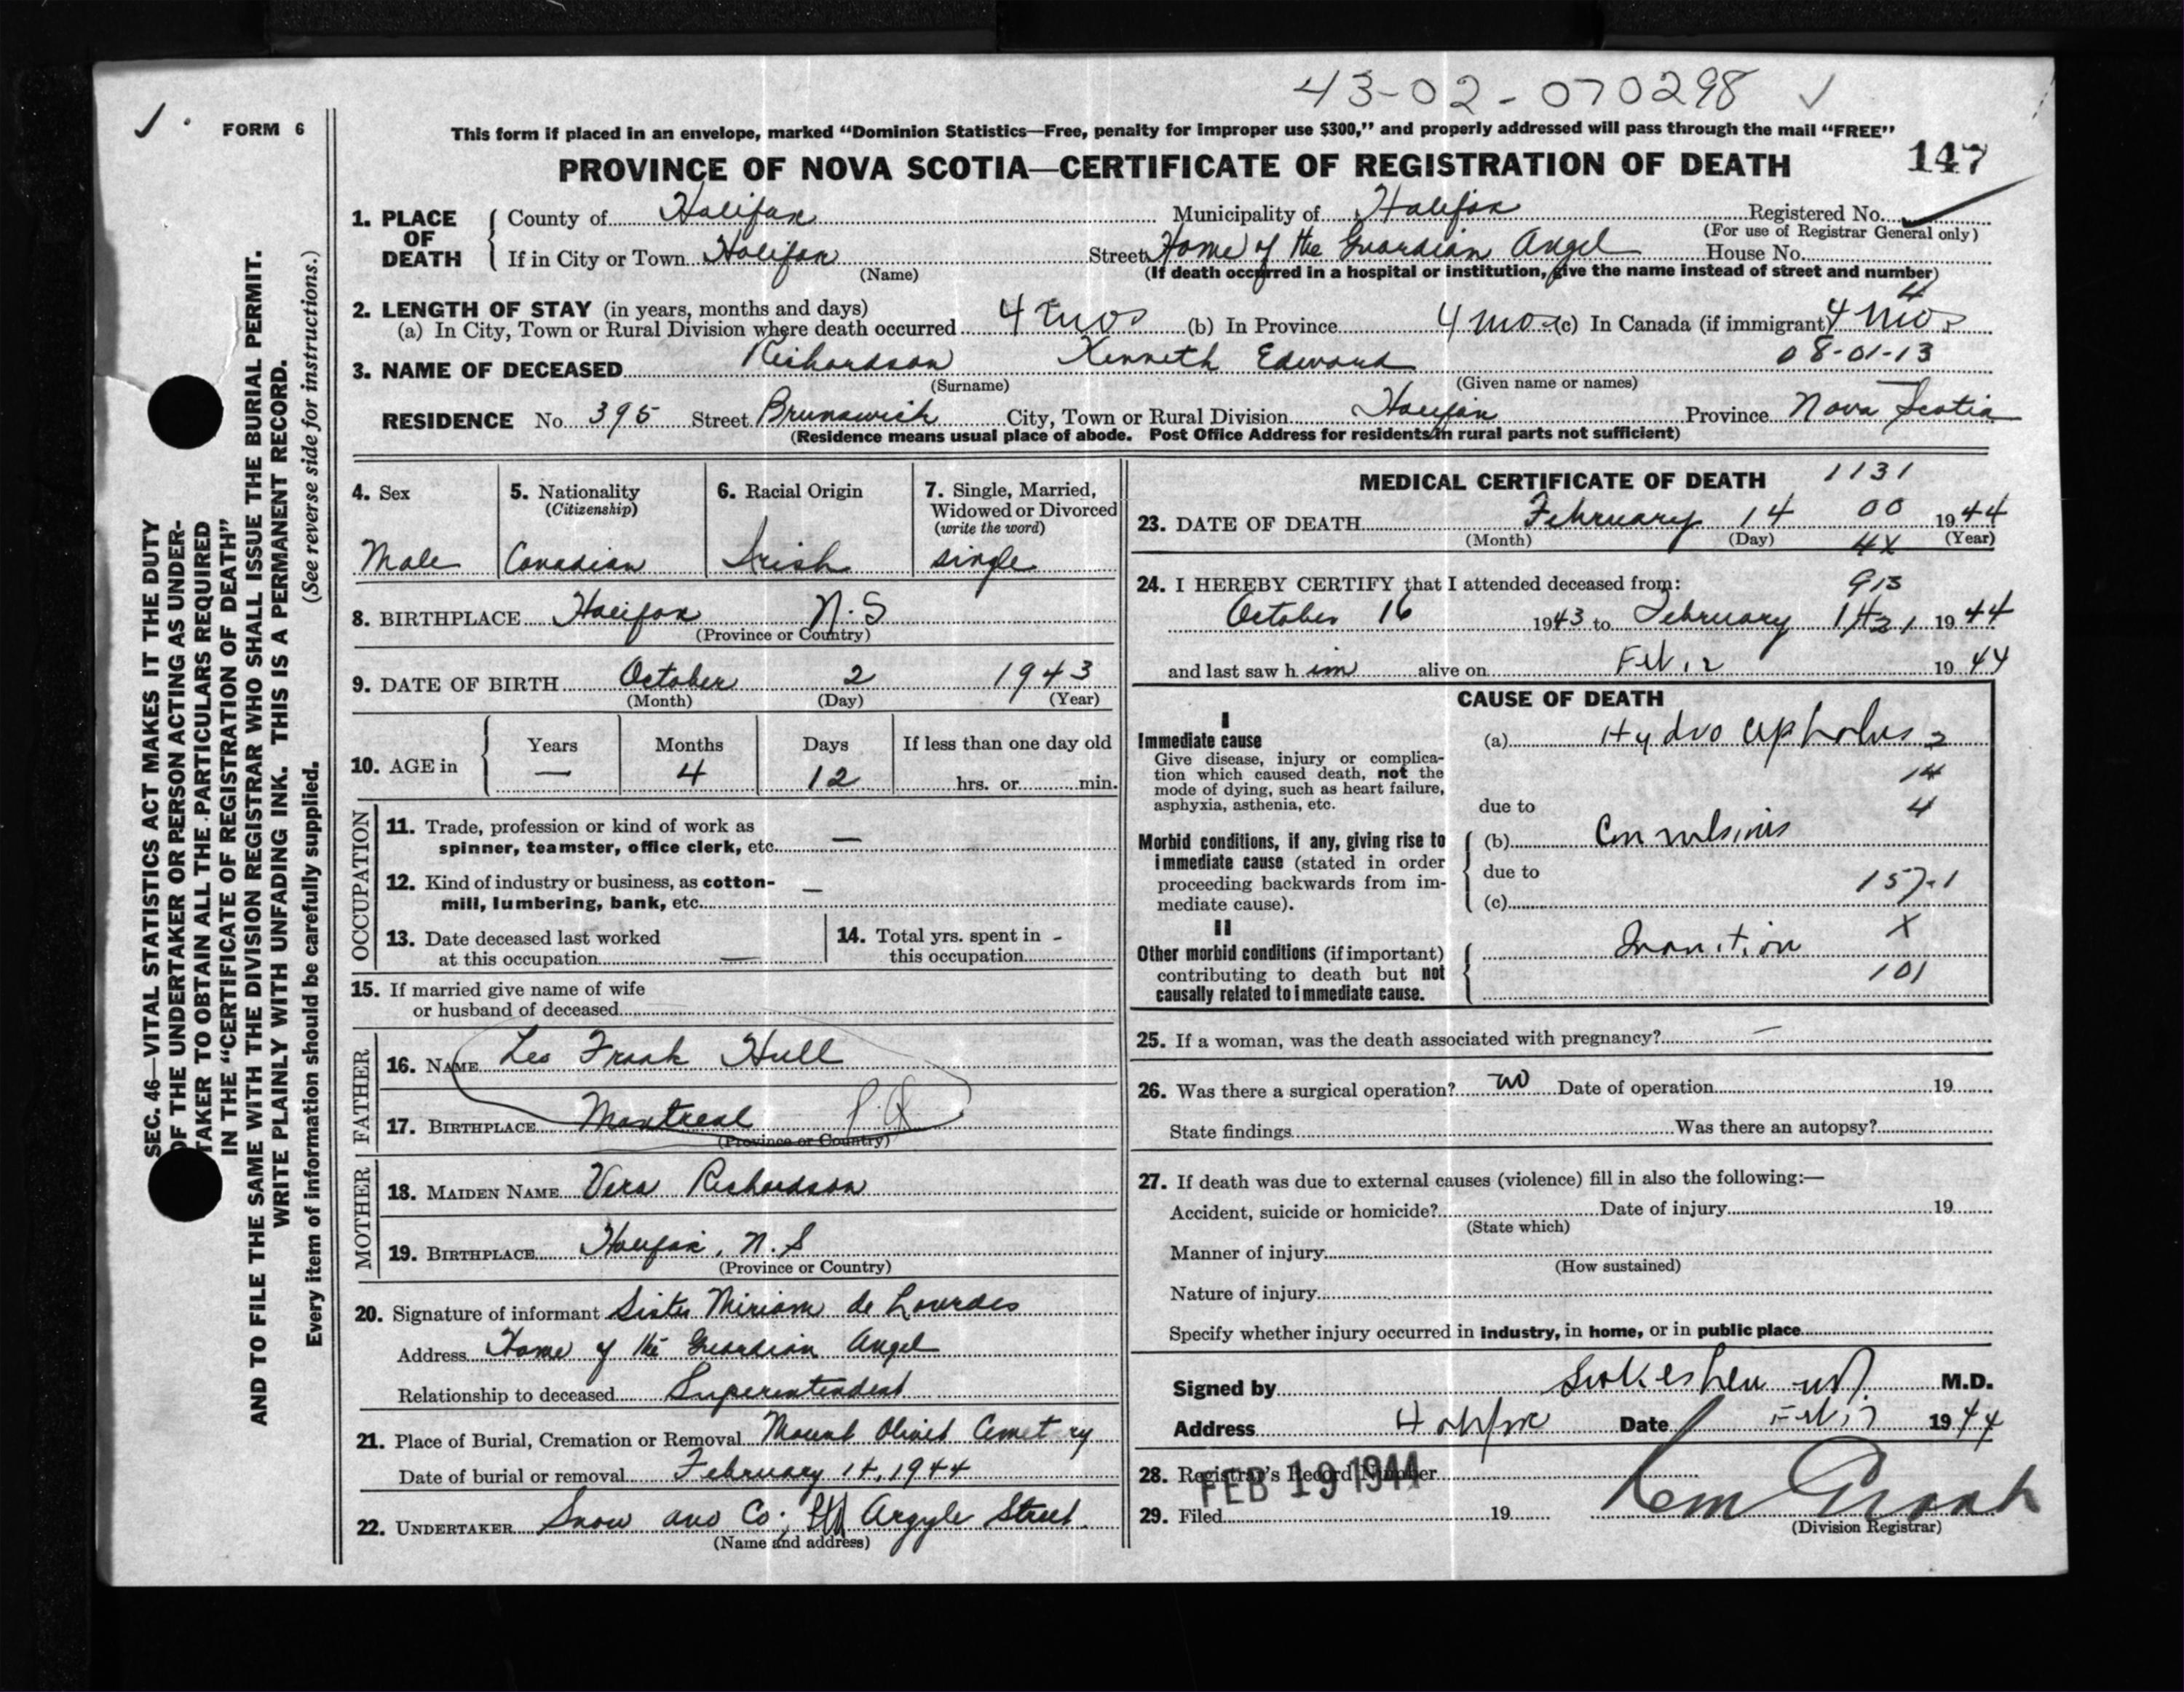 43-02-070298 ✓
FORM 6
This form if placed in an envelope, marked "Dominion Statistics—Free, penalty for improper use $300," and properly addressed will pass through the mail "FREE"
PROVINCE OF NOVA SCOTIA—CERTIFICATE OF REGISTRATION OF DEATH 147
1. PLACE OF DEATH
County of Halifax Municipality of Halifax Registered No.
(For use of Registrar General only)
If in City or Town Halifax Street Home of the Guardian Angel House No.
(Name) (If death occurred in a hospital or institution, give the name instead of street and number)
2. LENGTH OF STAY (in years, months and days)
(a) In City, Town or Rural Division where death occurred 4 mos (b) In Province 4 mos (c) In Canada (if immigrant) 4 mos
4
3. NAME OF DECEASED Richardson Kenneth Edward 08-01-13
(Surname) (Given name or names)
RESIDENCE No. 395 Street Brunswick City, Town or Rural Division Halifax Province Nova Scotia
(Residence means usual place of abode. Post Office Address for residents in rural parts not sufficient)
4. Sex
Male
5. Nationality
(Citizenship)
Canadian
6. Racial Origin
Irish
7. Single, Married,
Widowed or Divorced
(write the word)
single
8. BIRTHPLACE Halifax N.S
(Province or Country)
9. DATE OF BIRTH October 2 1943
(Month) (Day) (Year)
10. AGE in
Years Months Days If less than one day old
— 4 12 hrs. or min.
OCCUPATION
11. Trade, profession or kind of work as
spinner, teamster, office clerk, etc. —
12. Kind of industry or business, as cotton-
mill, lumbering, bank, etc. —
13. Date deceased last worked
at this occupation —
14. Total yrs. spent in -
this occupation
15. If married give name of wife
or husband of deceased
FATHER
16. NAME Leo Frank Hull
17. BIRTHPLACE Montreal P.Q
(Province or Country)
MOTHER
18. MAIDEN NAME Vera Richardson
19. BIRTHPLACE Halifax, N.S
(Province or Country)
20. Signature of informant Sister Miriam de Lourdes
Address Home of the Guardian Angel
Relationship to deceased Superintendent
21. Place of Burial, Cremation or Removal Mount Olivet Cemetery
Date of burial or removal February 14, 1944
22. UNDERTAKER Snow and Co; Argyle Street
(Name and address)
MEDICAL CERTIFICATE OF DEATH 1131
23. DATE OF DEATH February 14 00 1944
(Month) (Day) 4X (Year)
24. I HEREBY CERTIFY that I attended deceased from: 913
October 16 1943 to February 14 21 1944
and last saw him alive on Feb 12 1944
CAUSE OF DEATH
I
Immediate cause
Give disease, injury or complica-
tion which caused death, not the
mode of dying, such as heart failure,
asphyxia, asthenia, etc.
(a) Hydrocephalus 2
14
due to 4
Morbid conditions, if any, giving rise to
immediate cause (stated in order
proceeding backwards from im-
mediate cause).
(b) Convulsions
due to
157-1
(c)
II
Other morbid conditions (if important)
contributing to death but not
causally related to immediate cause.
Inanition X
101
25. If a woman, was the death associated with pregnancy? —
26. Was there a surgical operation? no Date of operation 19
State findings Was there an autopsy?
27. If death was due to external causes (violence) fill in also the following:—
Accident, suicide or homicide? Date of injury 19
(State which)
Manner of injury
(How sustained)
Nature of injury
Specify whether injury occurred in industry, in home, or in public place
Signed by M.D.
Address Halifax Date Feb 17 1944
28. Registrar's Record Number
FEB 19 1944
29. Filed 19
(Division Registrar)
SEC. 46—VITAL STATISTICS ACT MAKES IT THE DUTY
OF THE UNDERTAKER OR PERSON ACTING AS UNDER-
TAKER TO OBTAIN ALL THE PARTICULARS REQUIRED
IN THE "CERTIFICATE OF REGISTRATION OF DEATH"
AND TO FILE THE SAME WITH THE DIVISION REGISTRAR WHO SHALL ISSUE THE BURIAL PERMIT.
WRITE PLAINLY WITH UNFADING INK. THIS IS A PERMANENT RECORD.
Every item of information should be carefully supplied. (See reverse side for instructions.)